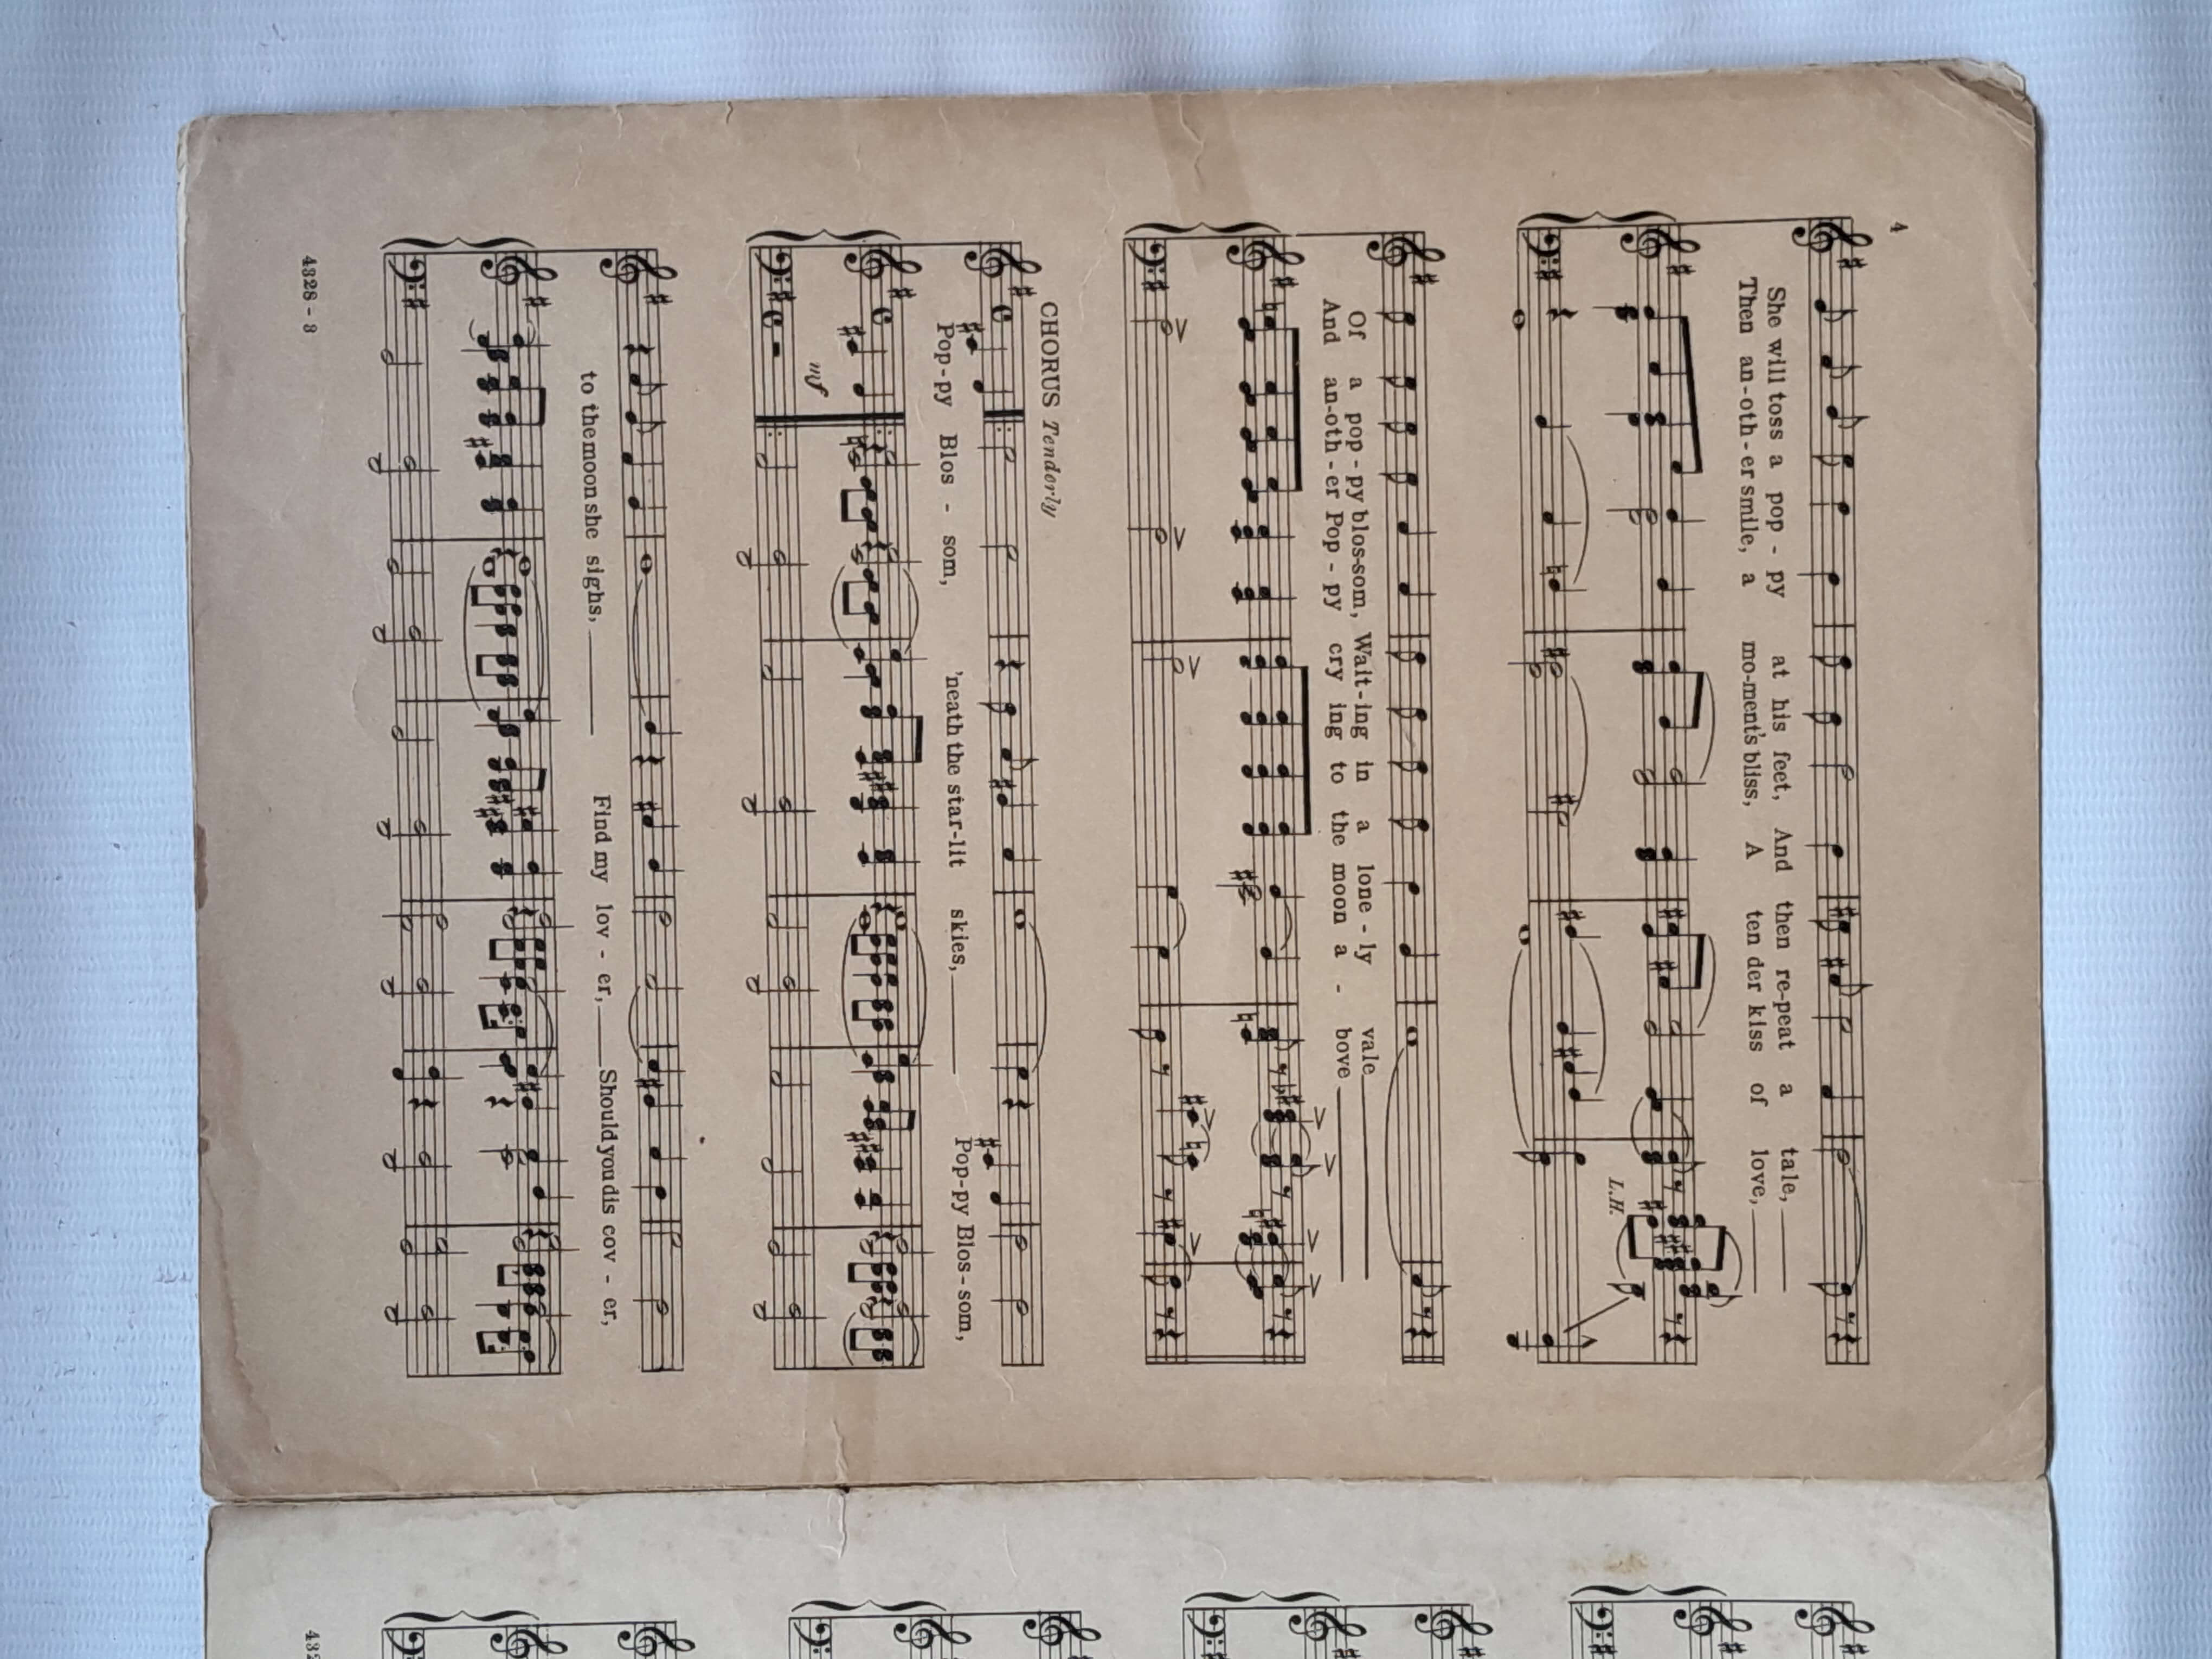 4
She will toss a pop - py at his feet, And then re-peat a tale,
Then an-oth-er smile, a mo-ment's bliss, A ten der kiss of love,
L.H.
Of a pop - py blos-som, Wait-ing in a lone - ly vale
And an-oth-er Pop - py cry ing to the moon a - bove
CHORUS Tenderly
Pop-py Blos - som, 'neath the star-lit skies, Pop-py Blos-som,
mf
to the moon she sighs, Find my lov - er, Should you dis cov - er,
4328 - 3
432